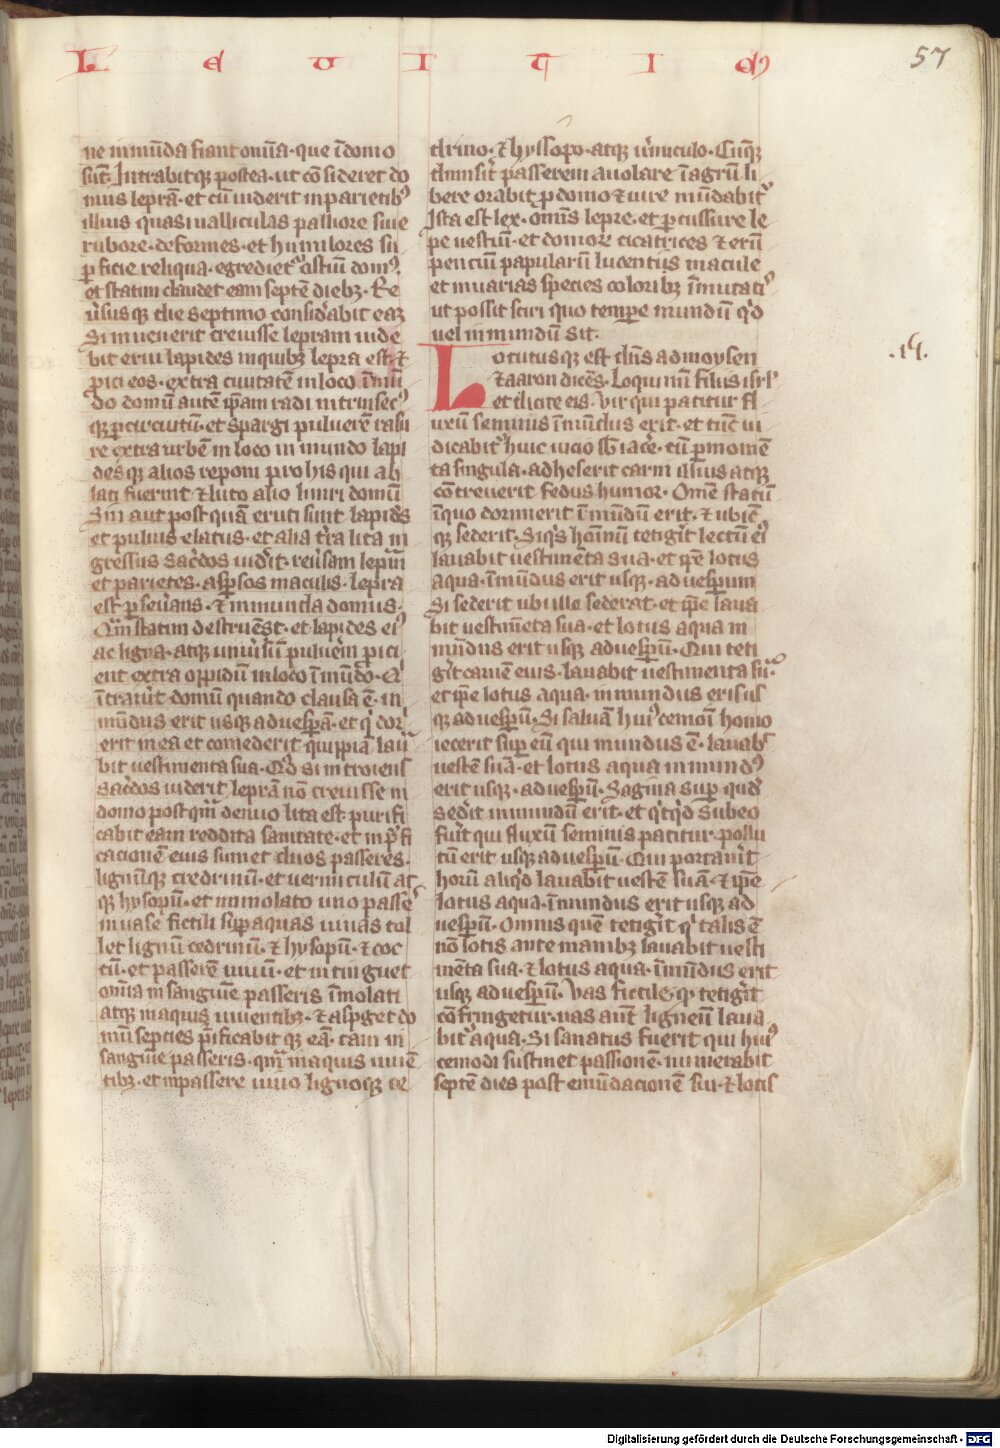 L e u I t I cꝰ
57
ne inmūda fiant om̄ia · que ī domo
sūt · Intrabitqꝫ postea · ut cōsideret do
musleprā · et cū uiderit in parietibꝰ
illius quasi ualliculas palliore siue
rubore · deformes · et humilores su
ꝑficie reliqua · egrediet̄ ostiū domꝰ ·
et statim claudet eam septē diebꝫ · Re
ūsus qꝫ die septimo consid̄abit eaꝫ
Si inuenerit creuisse lepram iube
bit erui lapides in quibꝫ lepra est ⁊
ꝓici eos · extra ciuitatē in loco īmū
do domū autē ip̄am radi intrinsecꝰ
qꝫ ꝑ circuitū · et spargi puluerē rasu
re extra urbē in loco inmundo lapi
desqꝫ alios reponi pro his qui ab
lati fuerint ⁊ luto alio liniri domū
Sin aut̄ post quā eruti sunt lapid̄s
et puluis elatus · et alia t̄ra lita in
gressus sac̄dos uid̄it · reūsam leprā
et parietes · asꝑsos maculis · lepra
est ꝑseūans · ⁊ inmunda domus ·
Qm̄ statim destruēt · et lapides eiꝰ
ac ligna · atqꝫ uniūsū puluerē ꝓici
ent extra oppidū in loco īmūdo · Q'
ītrau̓it domū quando clausa ē · in
mūdus erit usqꝫ ad uesꝑā · et q' dor
erit in ea et comederit quippiā laua
bit uestimenta sua · Qd̓ si introiens
sac̄dos uiderit leprā nō creuisse in
domo postqm̄ denuo lita est purifi
cabit eam reddita sanitate · et in pͥfi
cacionē eius sumet duos passeres ·
lignūqꝫ cedrinū · et uermiculū at
qꝫ hysopū · et inmolato uno passe
in uase fictili suꝑ aquas uiuas tol
let lignū cedrinū · ⁊ hysopū · ⁊ coc
cū · et passerē uiuū · et intinguet
om̄ia in sanguīe passeris īmolati
atqꝫ in aquis uiuentibꝫ · ⁊ asꝑget do
mū sepcies pͥficabitqꝫ eā · tam in
sanguīe passeris · qm̄ in aquis uiuē
tibꝫ · et in passere uiuo lignoqꝫ ce
drino · ⁊ hyssopo · atqꝫ ūmiculo · Cūqꝫ
dimis̓it passerem auolare ī agrū li
bere orabit ꝓ domo ⁊ iure mūdabit̄
Ista est lex · om̄is lepre · et ꝑcussure le
pe uestiū · et domoꝝ cicatrices ⁊ erū
pencium papularū lucentiis macule
et in uarias species coloribꝫ īmutatꝭ
ut possit sciri quo tempe mundū qd̓
uel in mundū sit ·
.14.
Locutusqꝫ est dn̄s ad moysen
⁊ aaron dicēs · Loquimī filiis isrl̓
et dicite eis · Vir qui patitur fl
uxū seminis īmūdus erit · et tūc iu
dicabit̄ huic uicio sb̓iacē · cū ꝑ momē
ta singula · adheserit carni illius atqꝫ
cōcreuerit fedus humor · Om̄e statū
ī quo dormierit īmūdū erit · ⁊ ubicū
qꝫ sederit · Siq̓s hoīnū tetig̓it lectū eiꝰ
lauabit uestimēta sua · et ip̄e lotus
aqua · īmūdus erit usqꝫ · ad uesꝑum
Si sederit ubi ille sederat · et ip̄e laua
bit uestimēta sua · et lotus aqua in
mūdus erit usqꝫ ad uesꝑū · Qui teti
g̓it carnē eius · lauabit uestimenta sua
et ip̄e lotus aqua · inmundus erit us
qꝫ ad uesꝑū · Si saliuā huiꝰcemōi homo
iecerit suꝑ eū qui mundus ē · lauabͭ
uestē suā · et lotus aqua inmundꝰ
erit usqꝫ · ad uesꝑū · Sagma suꝑ quod
sed̓it inmundū erit · et q̓cq̓d subeo
fu̓it qui fluxū seminis patitur · pollu
tū erit usqꝫ ad uesꝑū · Qui portau̓it
horū aliq̓d lauabit uestē suā · ⁊ ip̄e
lotus aqua · īmundus erit usqꝫ ad
uesꝑū · Omnis quē tetig̓it q' talis ē
nō lotis ante manibꝫ lauabit uesti
mēta sua · ⁊ lotus aqua · īmūdus erit
usqꝫ ad uesꝑū · Vas fictile · qd̓ tetig̓it
cōfringetur · uas aut̄ ligneū laua
bit̄ aqua · Si sanatus fuerit qui huiꝰ
cemodi sustinet passionē · numerabit
septē dies post emūdacionē sui · ⁊ lotis
Digitalisierung gefördert durch die Deutsche Forschungsgemeinschaft - DFG